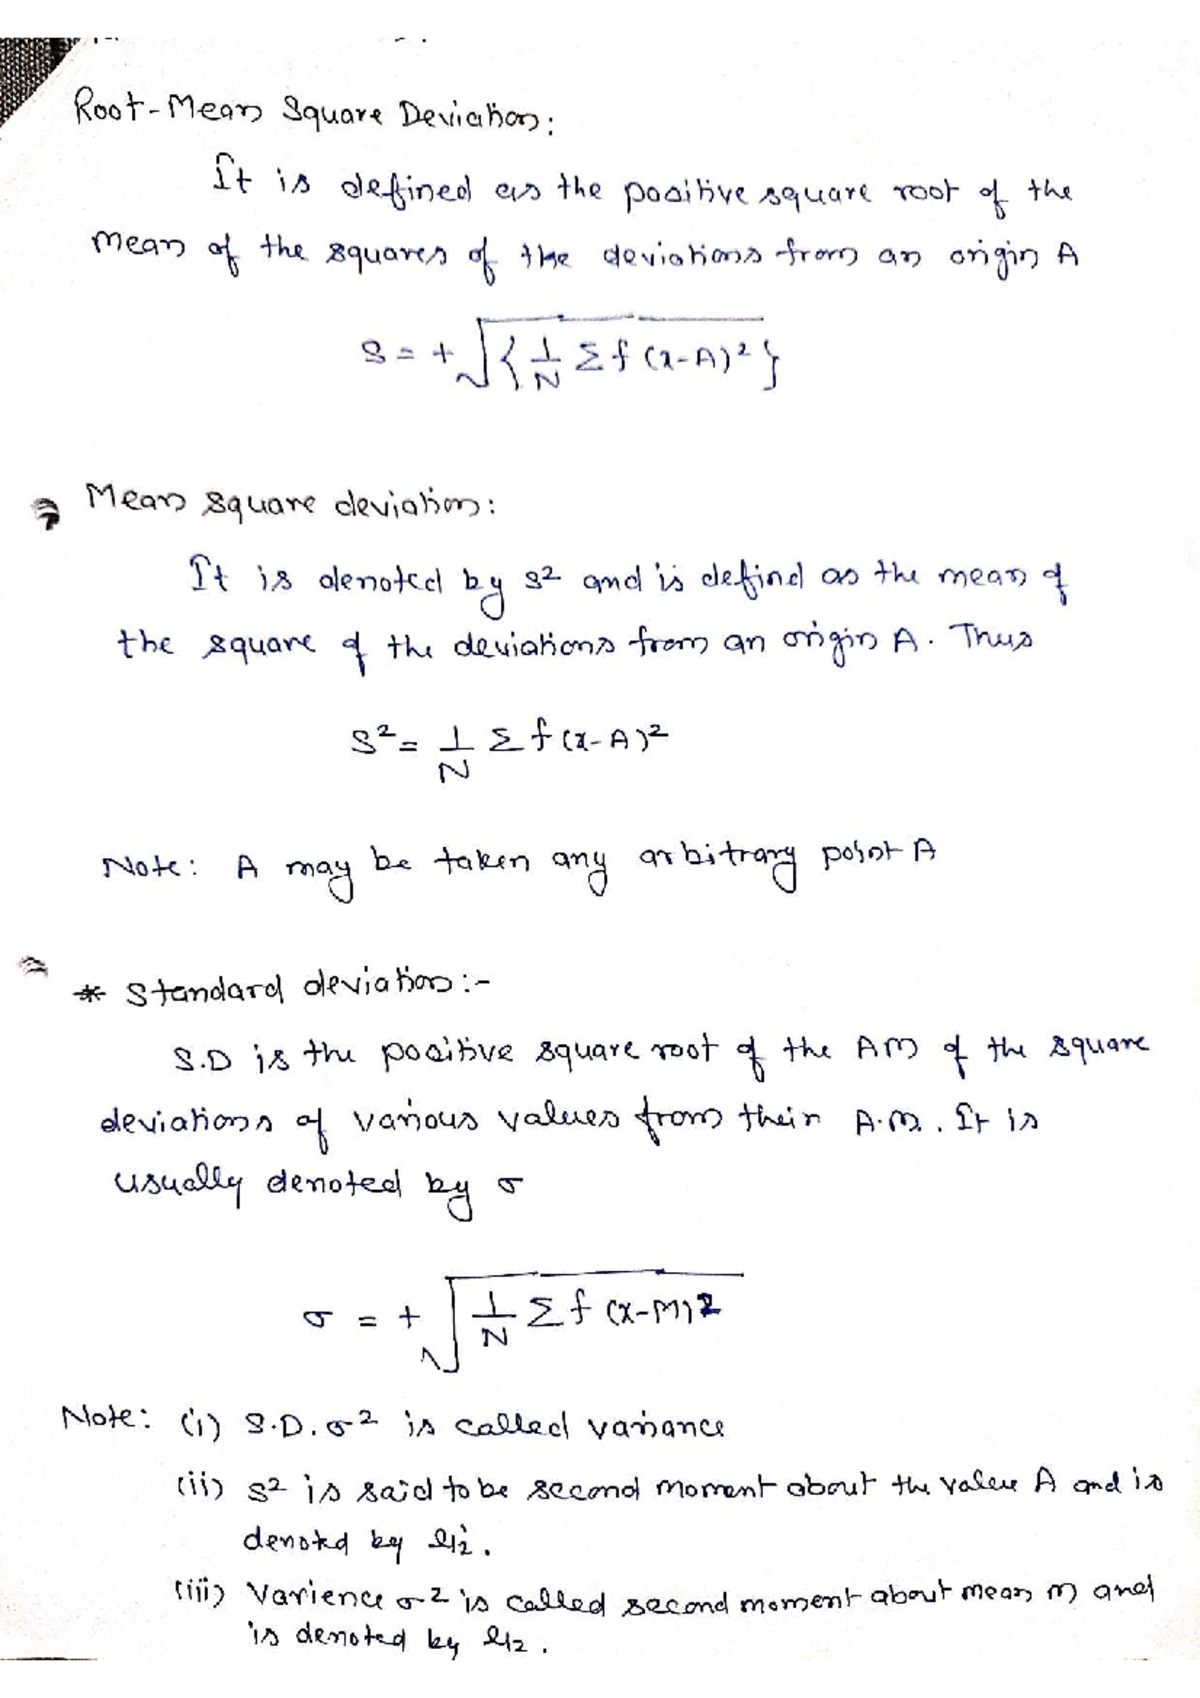 Root-Mean Square Deviation:
It is defined as the positive square root of the
mean of the squares of the deviations from an origin A
S = + √{1/N Σf(x-A)²}
Mean square deviation:
It is denoted by s² and is defind as the mean of
the square of the deviations from an origin A. Thus
S² = 1/N Σf(x-A)²
Note: A may be taken any arbitrary point A
* Standard deviation:-
S.D is the positive square root of the AM of the square
deviations of various values from their A.M. It is
usually denoted by σ
σ = + √1/N Σf(x-M)²
Note: (i) S.D. σ² is called variance
(ii) s² is said to be second moment about the value A and is
denoted by μ₂'.
(iii) Varience σ² is called second moment about mean m and
is denoted by μ₂.